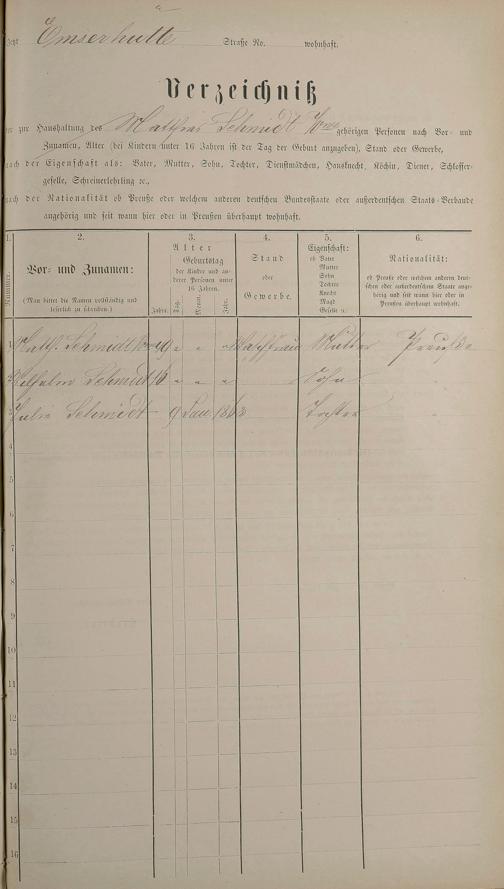 Emserhütte Straße No. wohnhaft.
Verzeichniß
der zur Haushaltung des Matthias Schmidt gehörigen Personen nach Vor- und
Zunamen, Alter (bei Kindern unter 16 Jahren ist der Tag der Geburt anzugeben), Stand oder Gewerbe,
nach der Eigenschaft als: Vater, Mutter, Sohn, Tochter, Dienstmädchen, Hausknecht, Köchin, Diener, Schlosser-
geselle, Schreinerlehrling ec.,
nach der Nationalität ob Preuße oder welchem anderen deutschen Bundesstaate oder außerdeutschen Staats-Verbande
angehörig und seit wann hier oder in Preußen überhaupt wohnhaft.
1. 2. 3. 4. 5. 6.
Nummer.
Vor- und Zunamen:
(Man bittet die Namen vollständig und
leserlich zu schreiben.)
Alter
Jahre.
Geburtstag
der Kinder und an-
derer Personen unter
16 Jahren.
Tag. Monat. Jahr.
Stand
oder
Gewerbe.
Eigenschaft:
ob Vater
Mutter
Sohn
Tochter
Knecht
Magd
Geselle ec.
Nationalität:
ob Preuße oder welchem anderen deut-
schen oder außerdeutschen Staate ange-
hörig und seit wann hier oder in
Preußen überhaupt wohnhaft.
1 Matth. Schmidt Waschfrau Mutter
2 Wilhelm Schmidt 16 Sohn
3 Julie Schmidt 9 Jan 1863 Tochter
4
5
6
7
8
9
10
11
12
13
14
15
16